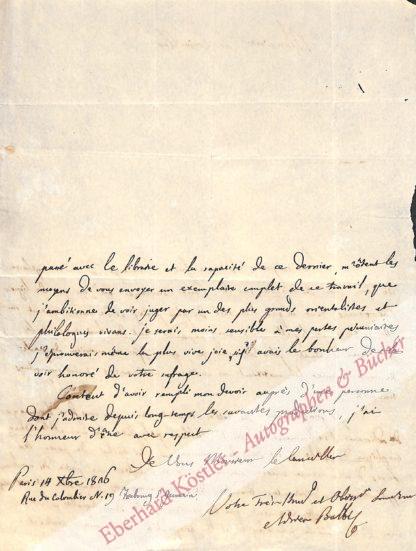 passé avec le libraire et la rapacité de ce dernier, m'ôtent les
moyens de vous envoyer un exemplaire complet de ce travail, que
j'ambitionne de voir juger par un des plus grands orientalistes et
philologues vivans. je serais moins sensible à mes pertes pécuniaires
j'éprouverais même la plus vive joie, si j'avais le bonheur de le
voir honoré du votre suffrage.
Content d'avoir rempli mon devoir auprès d'une personne
dont j'admire depuis long-temps les savantes productions, j'ai
l'honneur d'être avec respect
De Vous Monsieur le Conseiller
Paris 14 Xbre 1826
Rue du Colombier N. 19 Faubourg S. Germain
Votre Très-humb et Obéiss
Adrien Balbi
Eberhard Köstler - Autographen & Bücher